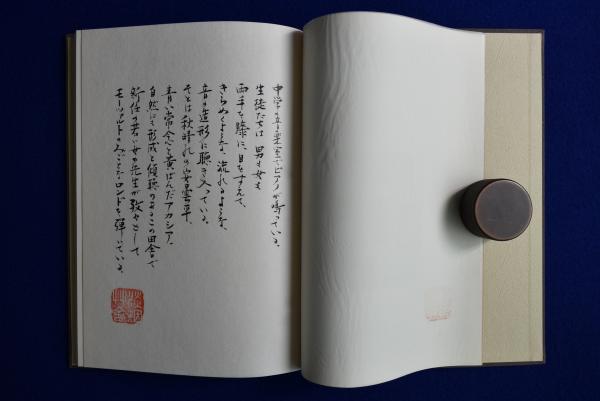 中学の音楽室でピアノが鳴っている。
生徒たちは 男も女も
両手を膝に、目をすえて、
きらめくような、流れるような、
音の造形に聴き入っている。
そとは秋晴れの安曇平、
青い常念と黄ばんだアカシア。
自然にも形成と傾聴のあるこの田舎で
新任の若い女の先生が孜々として
モーツァルトのみごとなロンドを弾いている。